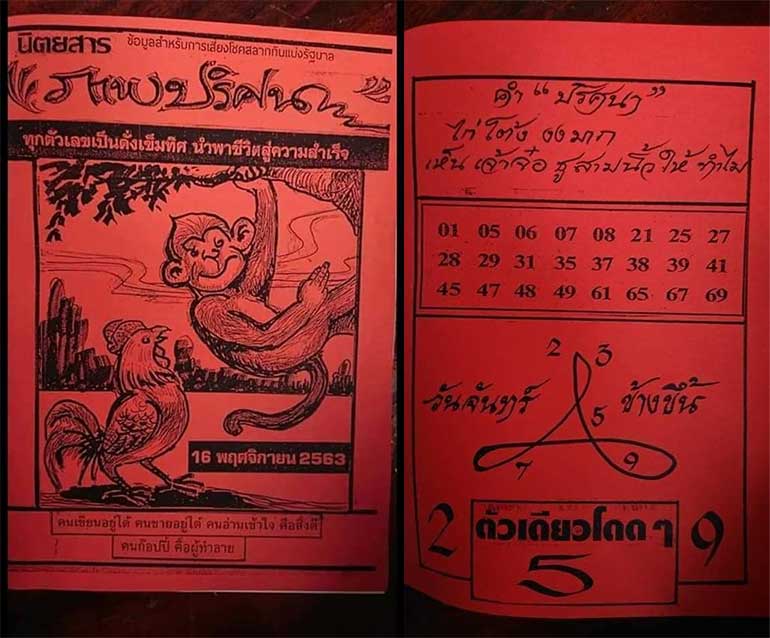 นิตยสาร
ข้อมูลสำหรับการเสี่ยงโชคสลากกินแบ่งรัฐบาล
ภาพปริศนา
ทุกตัวเลขเป็นดั่งเข็มทิศ นำพาชีวิตสู่ความสำเร็จ
16 พฤศจิกายน 2563
คนเขียนอยู่ได้ คนขายอยู่ได้ คนอ่านเข้าใจ คือสิ่งดี
คนก๊อปปี่ คือผู้ทำลาย
คำ “ปริศนา”
ไก่โต้ง งงมาก
เห็น เจ้าจ๋อ ชูสามนิ้ว ให้ ทำไม
01 05 06 07 08 21 25 27
28 29 31 35 37 38 39 41
45 47 48 49 61 65 67 69
2 3
วันจันทร์ 5 ข้างขึ้น
7 9
2 ตัวเดียวโดด ๆ 9
5